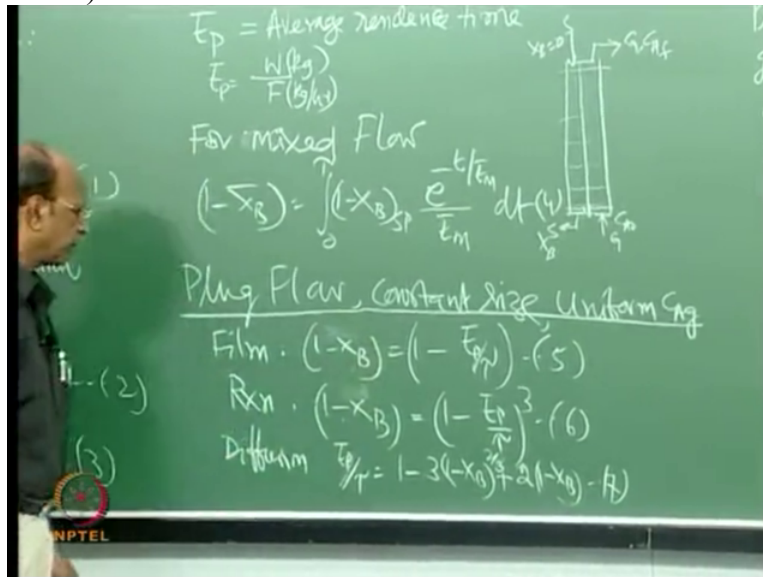 t̄p = Average residence time
t̄p = W(kg) / F(kg/hr)
For mixed Flow
(1-X̄B) = ∫₀^τ (1-XB)SP e^(-t/t̄m) / t̄m dt (4)
XB=0
XB
(1)
Plug Flow, constant size, Uniform CAg
Film. (1-XB) = (1 - t̄p/τ) - (5)
-(2)
Rxn. (1-XB) = (1 - t̄p/τ)³ - (6)
(3)
Diffusion t̄p/τ = 1 - 3(1-XB)^(2/3) + 2(1-XB) - (7)
NPTEL